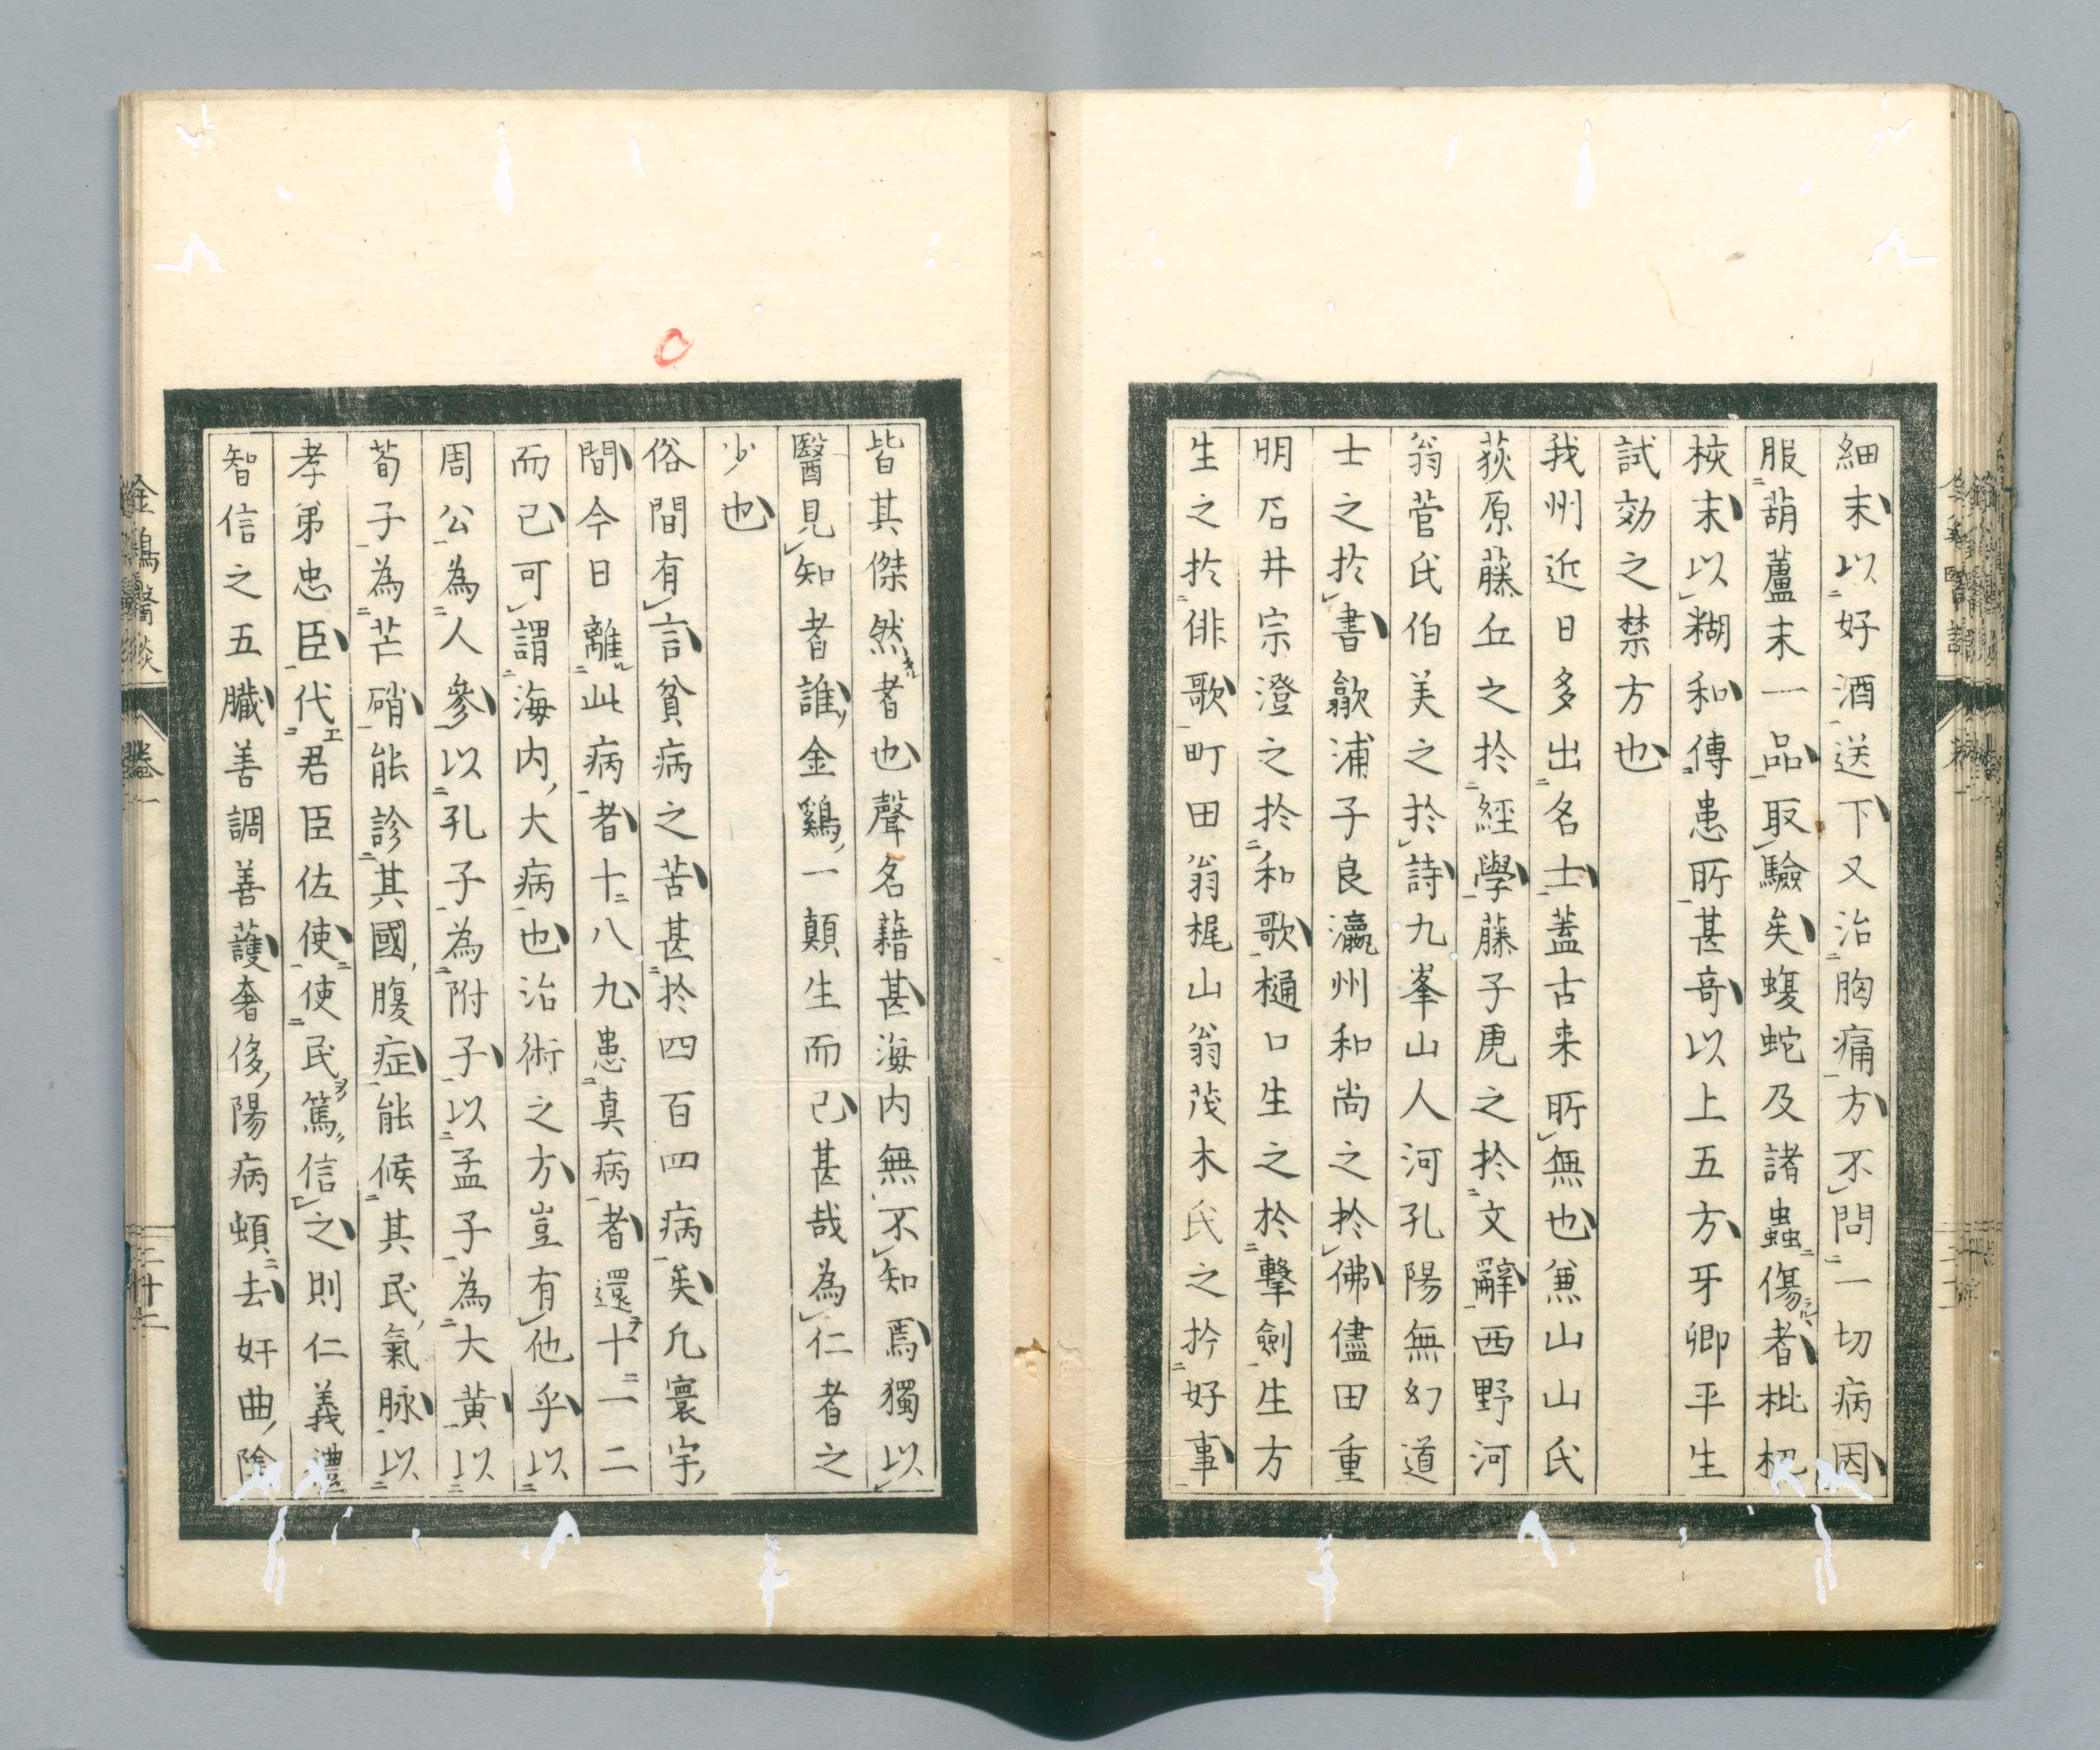 細末以好酒送下又治胸痛方不問一切病因
服葫蘆末一品取驗矣蝮蛇及諸蟲傷者枇杷
核末以糊和傳患所甚奇以上五方牙卿平生
試効之禁方也
我州近日多出名士蓋古来所無也兼山山氏
荻原藤丘之於經學藤子虎之於文辭西野河
翁菅氏伯美之於詩九峯山人河孔陽無幻道
士之於書歙浦子良瀛州和尚之於佛儘田重
明石井宗澄之於和歌樋口生之於擊劍生方
生之於俳歌町田翁梶山翁茂木氏之於好事
皆其傑然者也聲名藉甚海内無不知焉獨以
醫見知者誰金鷄一顛生而已甚哉為仁者之
少也
俗間有言貧病之苦甚於四百四病矣凡寰宇
間今日離此病者十八九患真病者還十一二
而已可謂海内大病也治術之方豈有他乎以
周公為人參以孔子為附子以孟子為大黄以
荀子為芒硝能診其國腹症能候其民氣脉以
孝弟忠臣代君臣佐使使民篤信之則仁義禮
智信之五臓善調善護奢侈陽病頓去奸曲陰
金鷄醫談
卷一
二十二